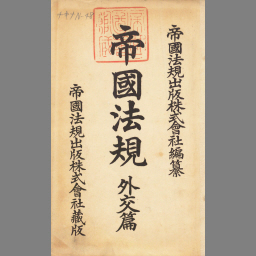 帝國法規出版株式會社編纂
帝國法規 外交篇
帝國法規出版株式會社藏版